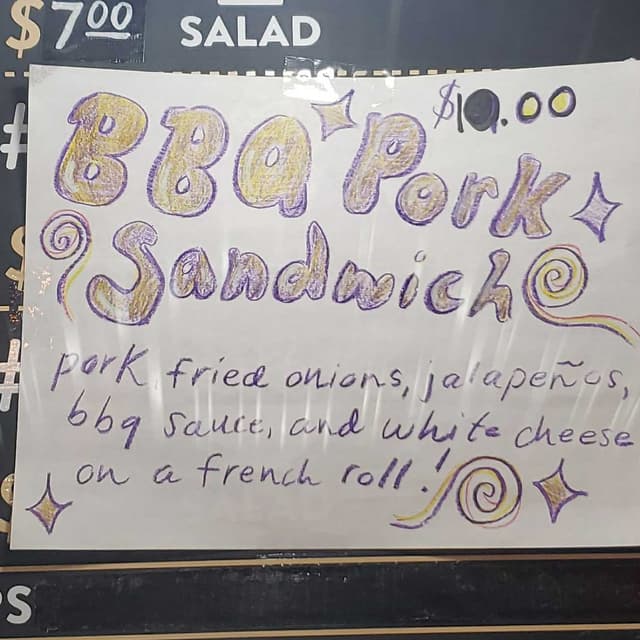 $7.00
SALAD
$10.00
BBQ Pork
Sandwich
pork, fried onions, jalapeños,
bbq sauce, and white cheese
on a french roll!